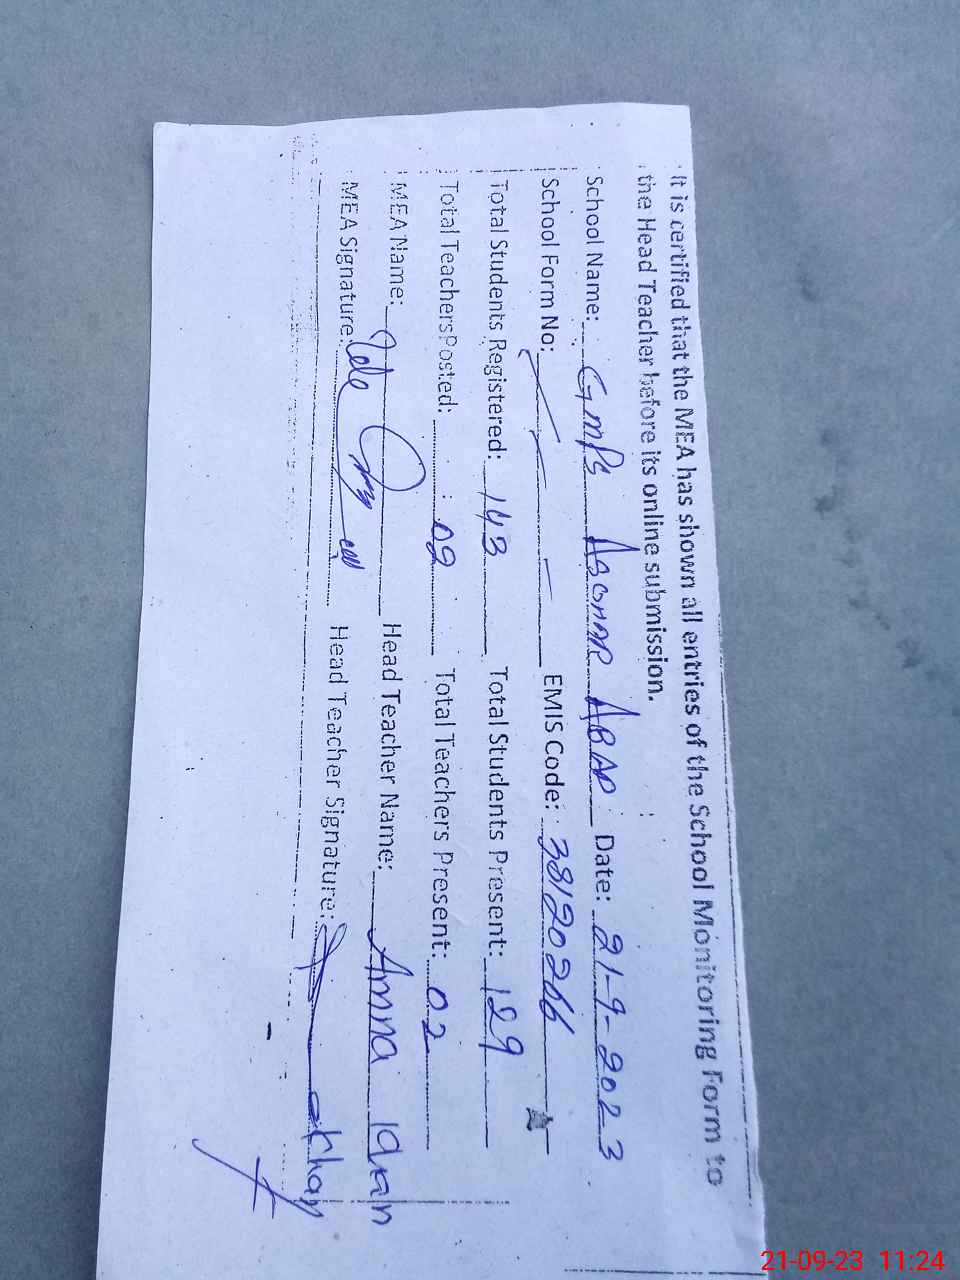 It is certified that the MEA has shown all entries of the School Monitoring Form to
the Head Teacher before its online submission.
School Name: GMPS Asghar ABAD Date: 21-9-2023
School Form No: EMIS Code: 38120266
Total Students Registered: 143 Total Students Present: 129
Total Teachers Posted: 02 Total Teachers Present: 02
MEA Name: Head Teacher Name: Amna
MEA Signature: Head Teacher Signature:
21-09-23 11:24